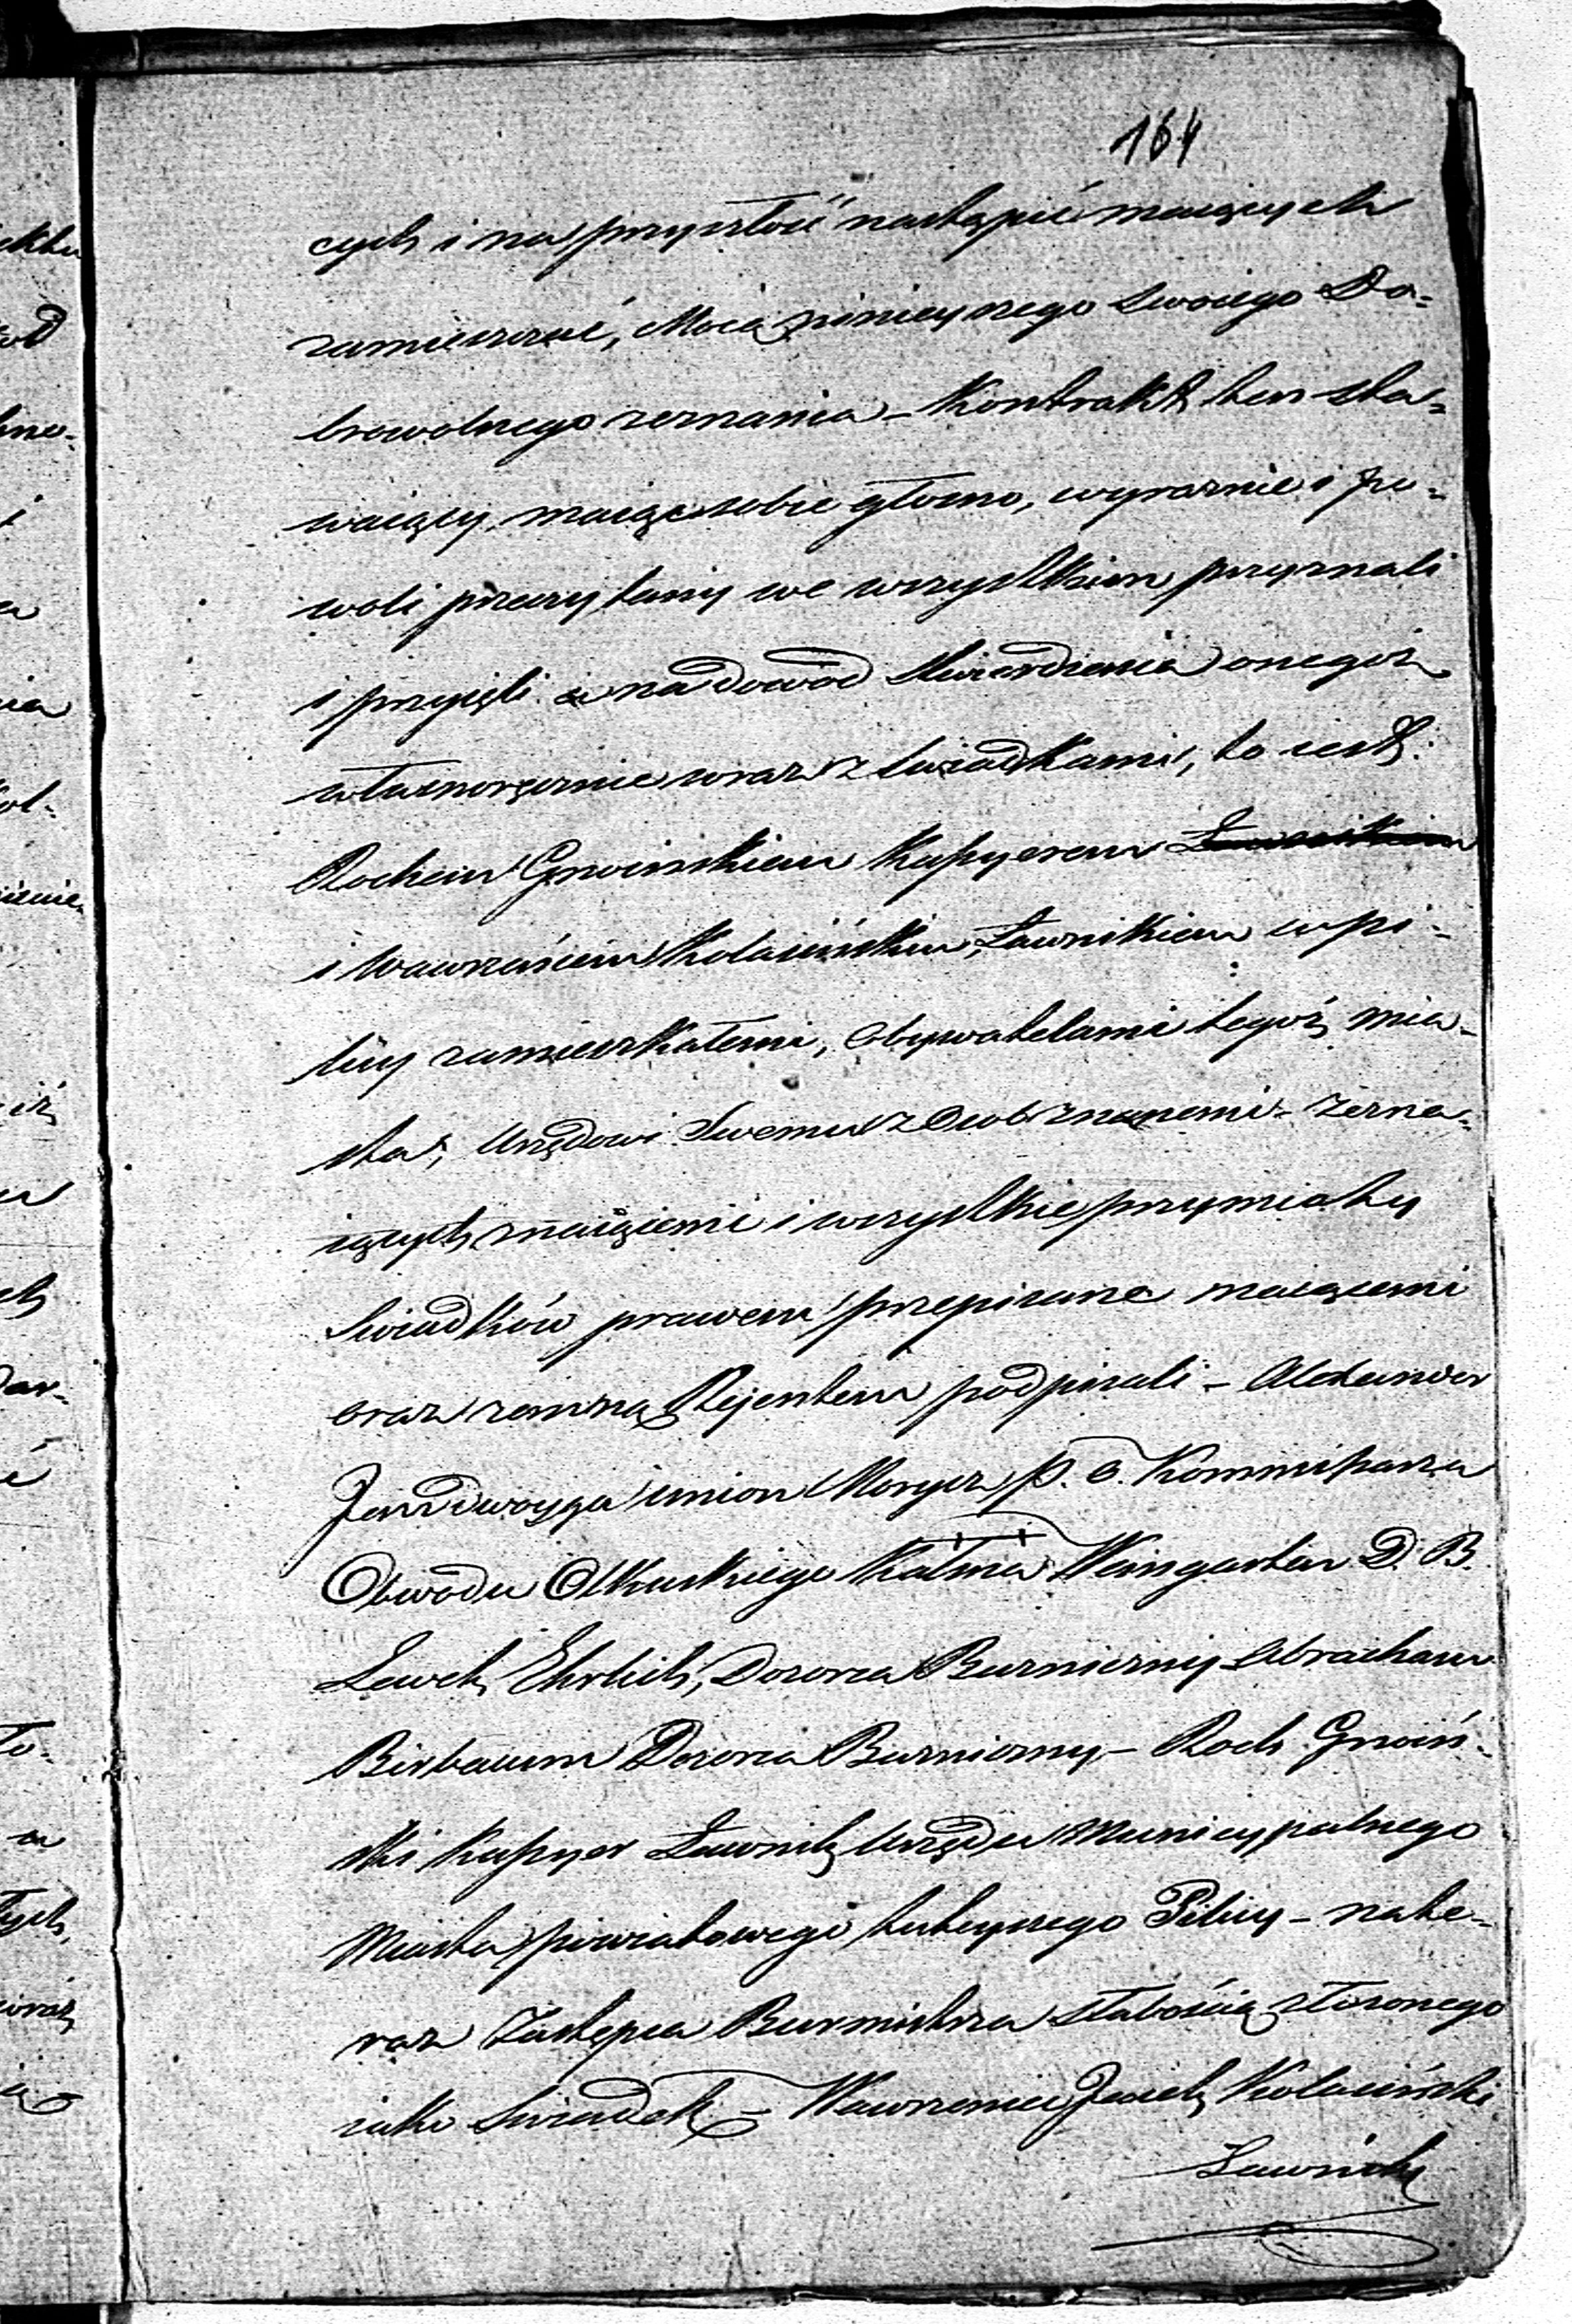 164
cych i na przyszłość nastąpić maiących
zamieszcać, Mocą ninieyszego swoiego Do=
browolnego zeznania – Kontrakt ten sta=
waiący, maiąc sobie głosno, wyraznie i po=
woli przeczytany we wszystkiem przyznali
i przyięli a na dowód stwierdzenia onegoż
własnoręcznie wraz z świadkami, to iest:
Rochem Gnoińskiem Kassyerem Ławnikiem
i Wawrzeńcem Kolasińskim, Ławnikiem w Pi=
licy zamieszkałemi, obywatelami tegoż mia=
sta, Urzędowi swemu z Osób znanemi – zezna=
iących znaiącemi i wszystkie przymioty
świadków prawem przepisane maiącemi
oraz zemną Rejentem podpisali – Alexander
Jendwoyga imion Moryca P. O. Kommissarza
Obwodu Olkuskiego Kalma Weingarten D. B.
Lewek Ehrlich, Dozorca Bużniczny Abraham
Birbaum Dozorca Bużniczny – Roch Gnoiń=
ski Kassyer Ławnik Urzędu Municypalnego
Miasta powiatowego tuteyszego Pilicy – na te=
raz Zastępca Burmistrza słabością złożonego
iako świadek – Wawrzeniec Jacek Kolasiński
Ławnik